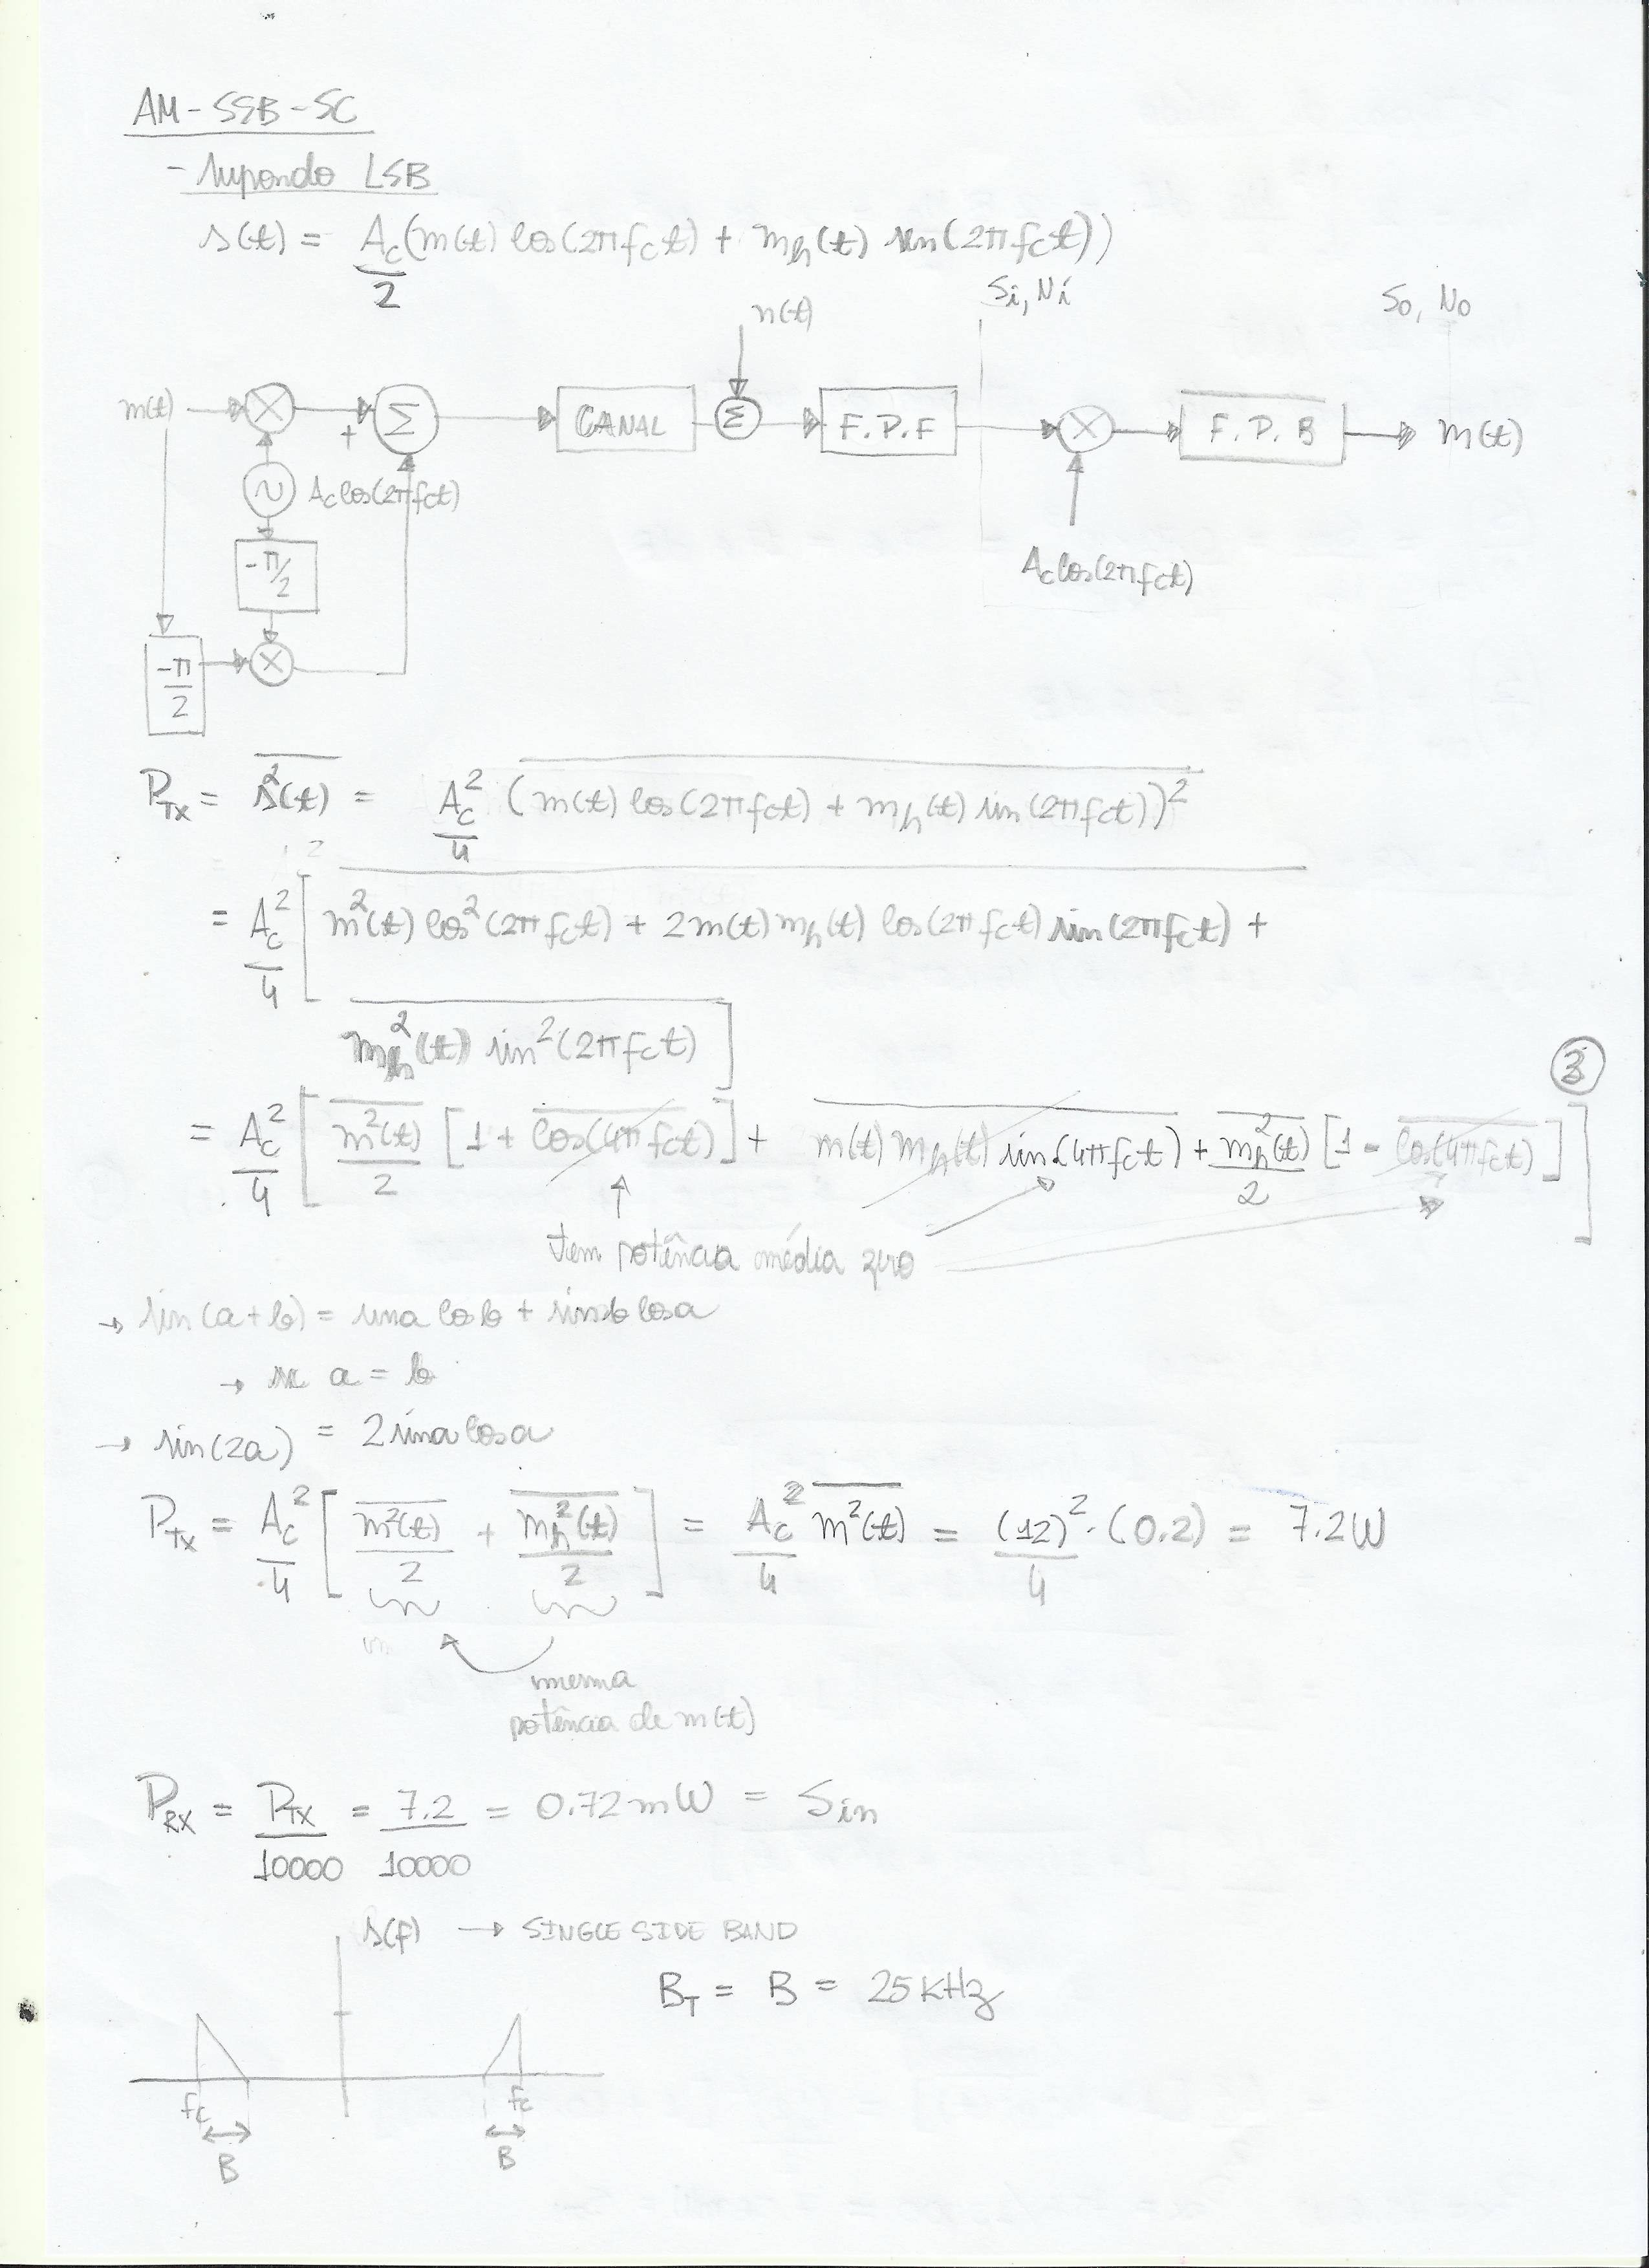 AM-SSB-SC
- Supondo LSB
s(t) = Ac/2 (m(t) cos(2πfct) + mh(t) sen(2πfct))
n(t)
Si, Ni
So, No
m(t)
+
Σ
CANAL
Σ
F.P.F
F.P.B
m(t)
Accos(2πfct)
-π/2
Accos(2πfct)
-π/2
PTx = s²(t) = Ac²/4 (m(t) cos(2πfct) + mh(t) sin(2πfct))²
= Ac²/4 [m²(t) cos²(2πfct) + 2m(t)mh(t) cos(2πfct) sin(2πfct) +
mh²(t) sin²(2πfct)]
3
= Ac²/4 [m²(t)/2 [1 + cos(4πfct)] + m(t)mh(t) sin(4πfct) + mh²(t)/2 [1 - cos(4πfct)]]
tem potência média zero
→ sin(a+b) = sina cosb + sinb cosa
→ se a = b
→ sin(2a) = 2sinacosa
PTx = Ac²/4 [m²(t)/2 + mh²(t)/2] = Ac²/4 m²(t) = (12)²/4 · (0.2) = 7.2W
mesma
potência de m(t)
PRX = PTX/10000 = 7.2/10000 = 0.72mW = Sin
s(f) → SINGLE SIDE BAND
BT = B = 25KHz
fc
fc
B
B